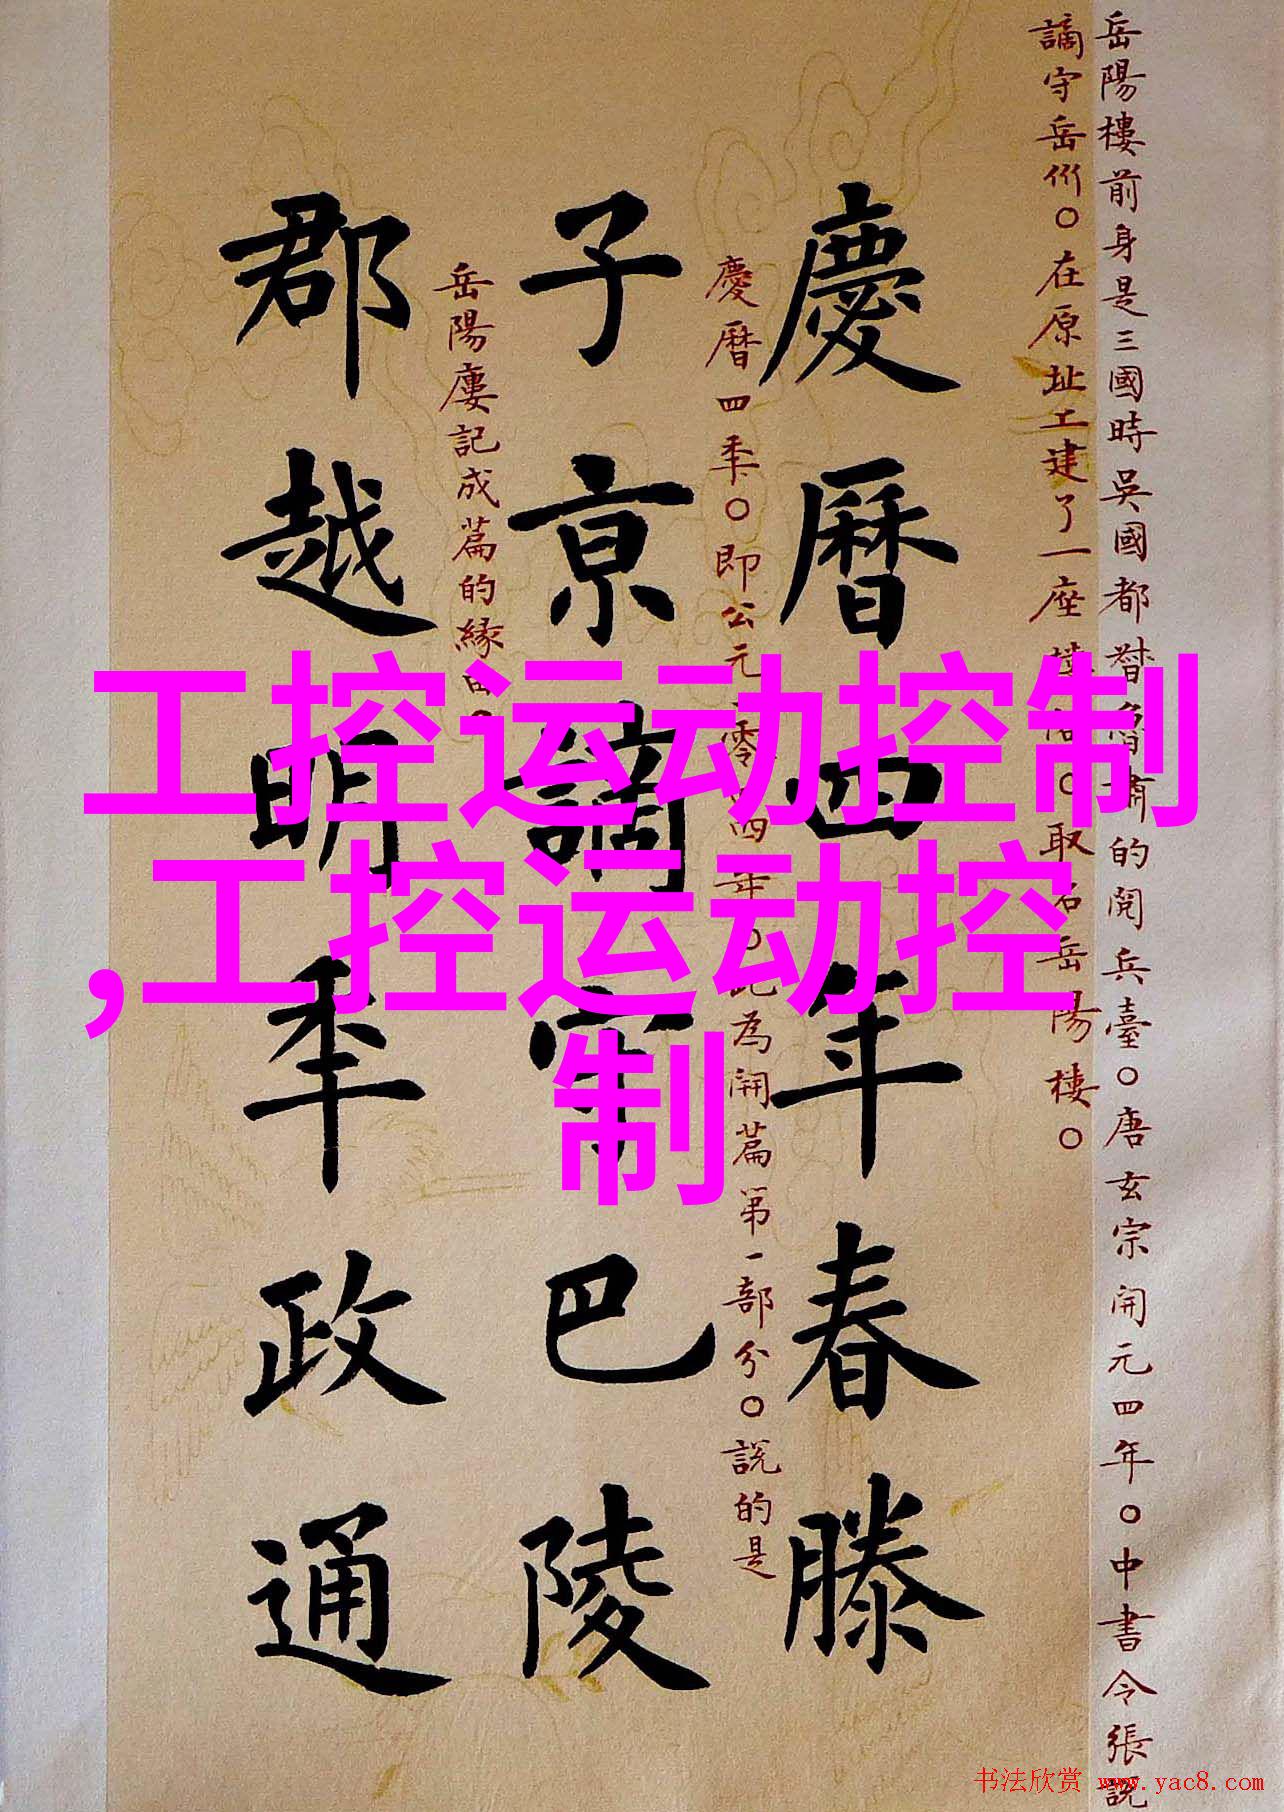 岳陽樓前身是三國時吳國都督魯肅的閱兵臺〇唐玄宗開元四年〇中書令張說
謫守岳州〇在原址工建了一座樓〇取名岳陽樓〇
慶曆四年春滕
慶曆四季〇即公元一零四四年〇此為開篇第一部分〇說的是
子京謫守巴陵
岳陽廔記成篇的緣由〇
郡越明季政通
工控运动控制
,工控运动控
制
书法欣赏 www.yac8.com